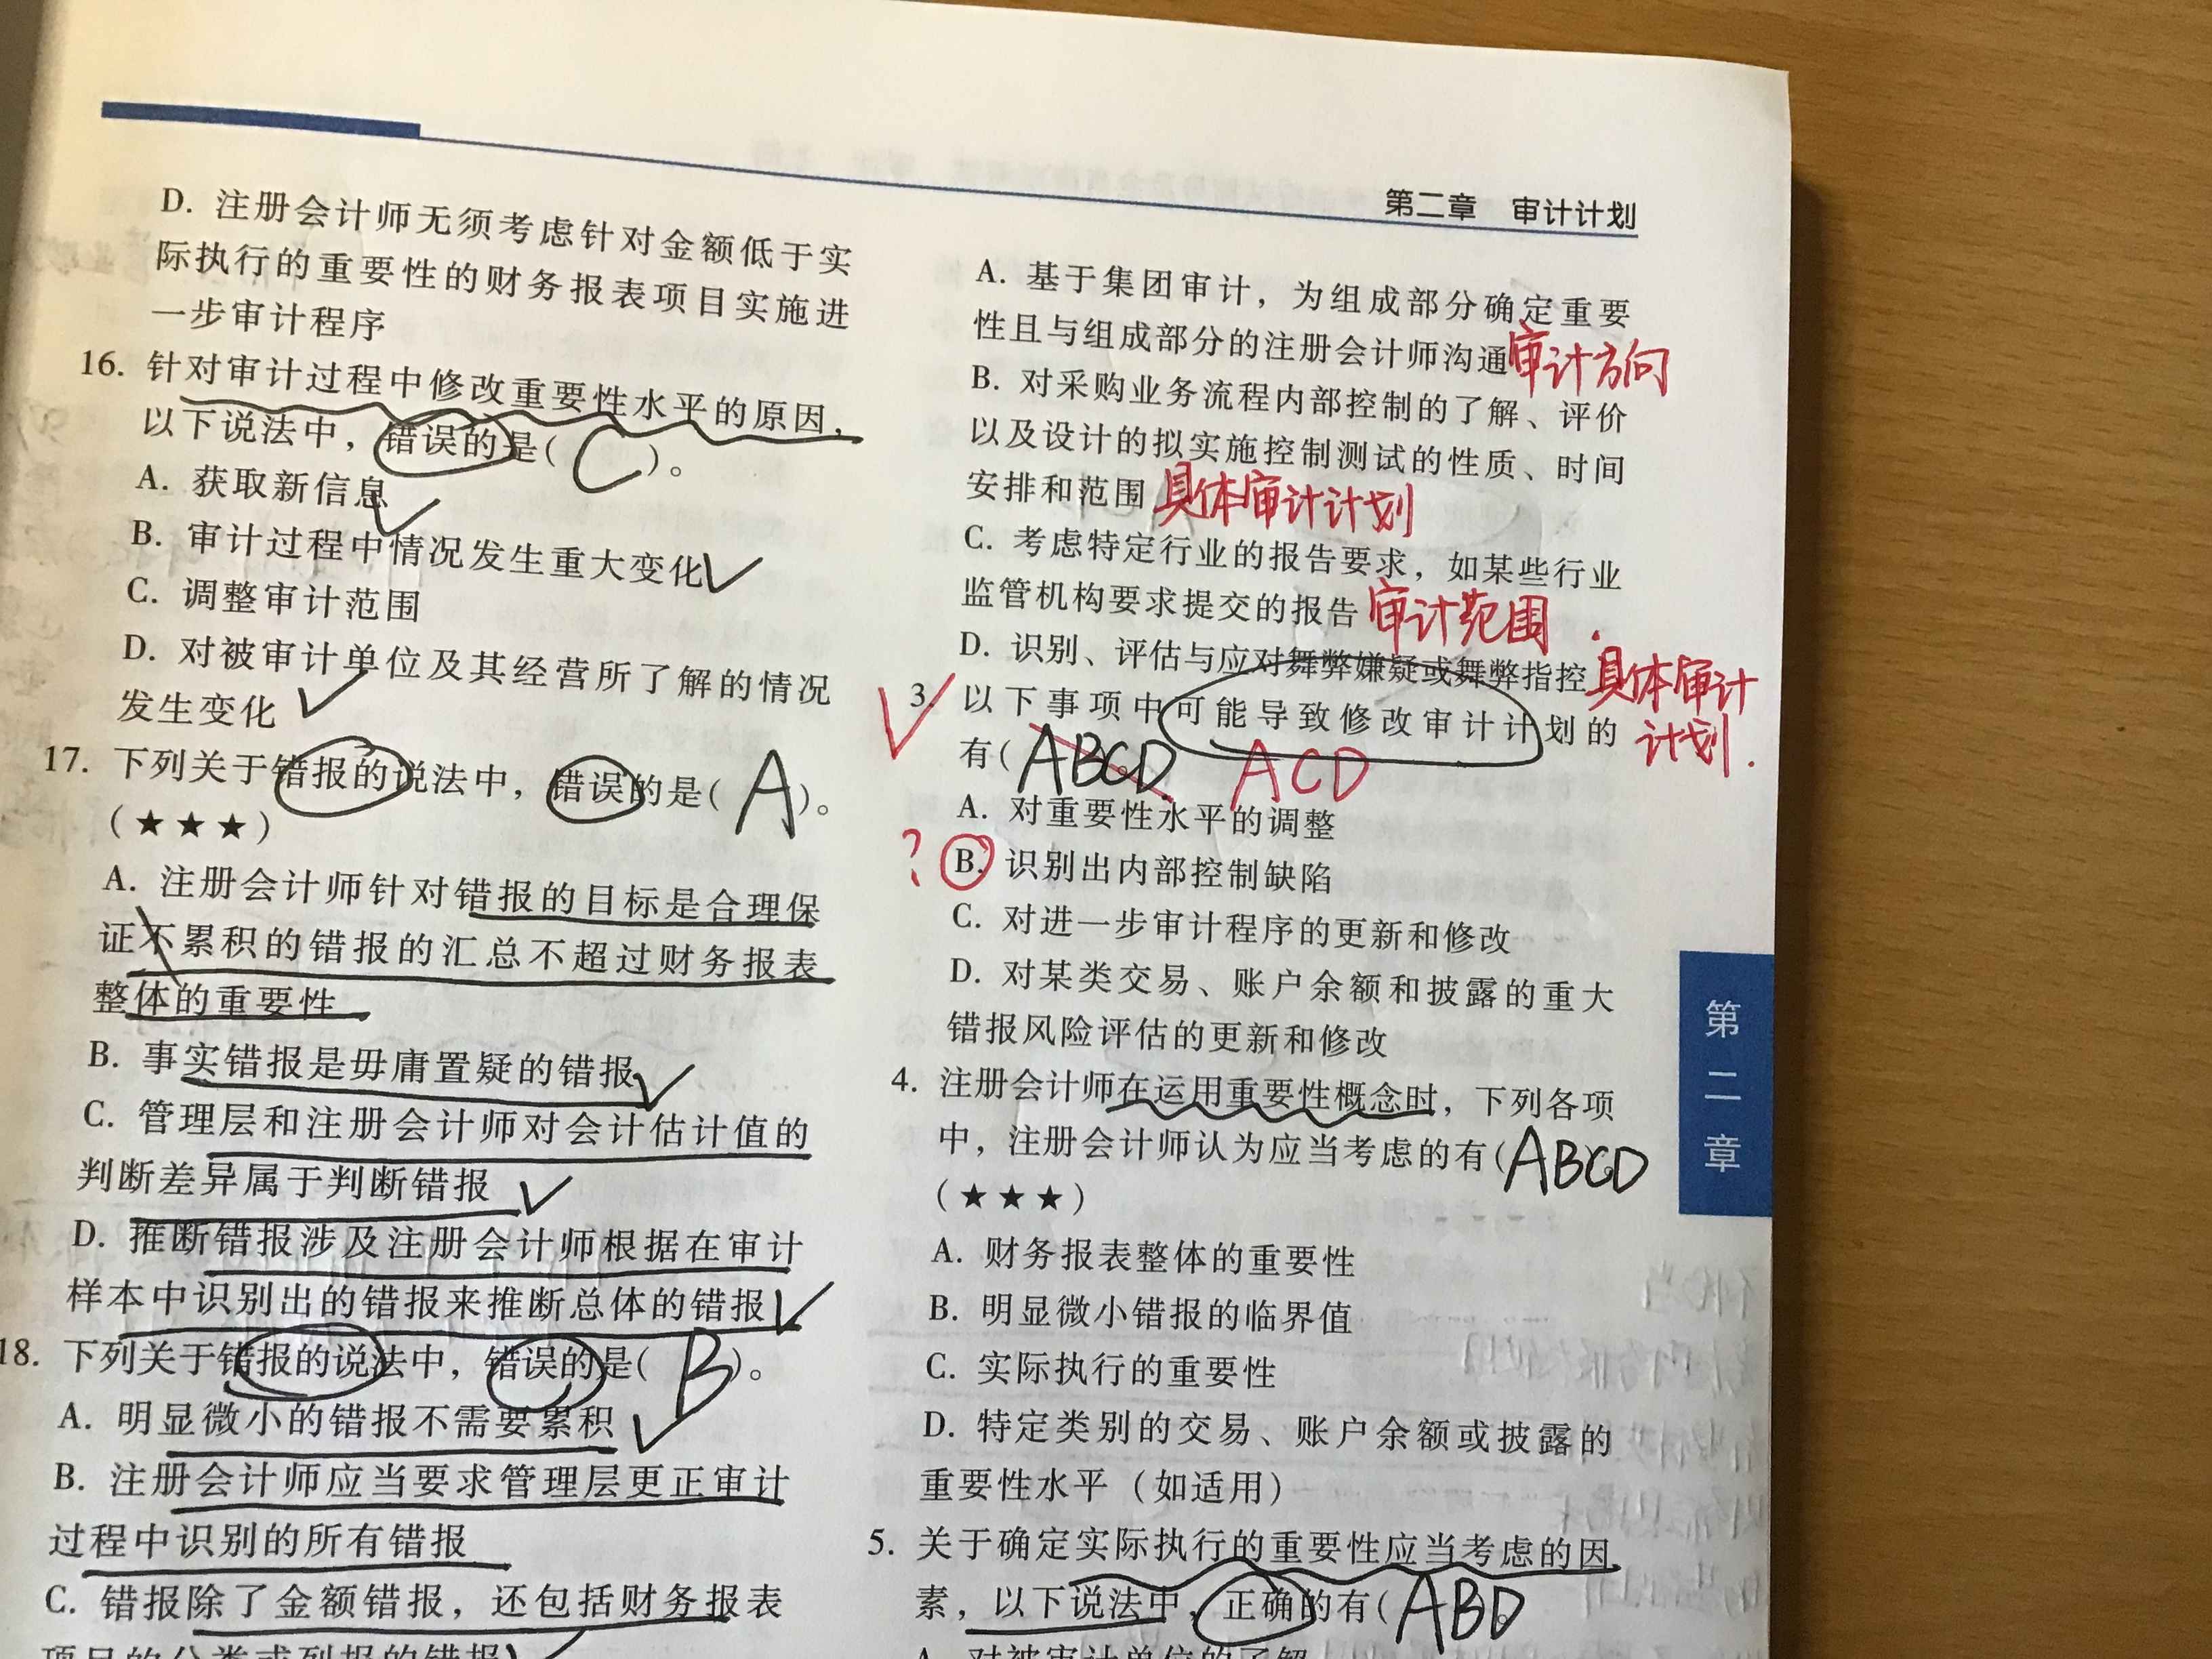 第二章 审计计划
D. 注册会计师无须考虑针对金额低于实
际执行的重要性的财务报表项目实施进
一步审计程序
16. 针对审计过程中修改重要性水平的原因，
以下说法中，错误的是( C )。
A. 获取新信息
B. 审计过程中情况发生重大变化
C. 调整审计范围
D. 对被审计单位及其经营所了解的情况
发生变化
17. 下列关于错报的说法中，错误的是( A )。
(★★★)
A. 注册会计师针对错报的目标是合理保
证不累积的错报的汇总不超过财务报表
整体的重要性
B. 事实错报是毋庸置疑的错报
C. 管理层和注册会计师对会计估计值的
判断差异属于判断错报
D. 推断错报涉及注册会计师根据在审计
样本中识别出的错报来推断总体的错报
18. 下列关于错报的说法中，错误的是( B )。
A. 明显微小的错报不需要累积
B. 注册会计师应当要求管理层更正审计
过程中识别的所有错报
C. 错报除了金额错报，还包括财务报表
项目的分类或列报的错报
A. 基于集团审计，为组成部分确定重要
性且与组成部分的注册会计师沟通 审计方向
B. 对采购业务流程内部控制的了解、评价
以及设计的拟实施控制测试的性质、时间
安排和范围 具体审计计划
C. 考虑特定行业的报告要求，如某些行业
监管机构要求提交的报告 审计范围
D. 识别、评估与应对舞弊嫌疑或舞弊指控 具体审计
计划.
3. 以下事项中可能导致修改审计计划的
有( ABCD ACD
A. 对重要性水平的调整
? B. 识别出内部控制缺陷
C. 对进一步审计程序的更新和修改
D. 对某类交易、账户余额和披露的重大
错报风险评估的更新和修改
4. 注册会计师在运用重要性概念时，下列各项
中，注册会计师认为应当考虑的有( ABCD
(★★★)
A. 财务报表整体的重要性
B. 明显微小错报的临界值
C. 实际执行的重要性
D. 特定类别的交易、账户余额或披露的
重要性水平（如适用）
5. 关于确定实际执行的重要性应当考虑的因
素，以下说法中，正确的有( ABD
A. 对被审计单位的了解
第二章